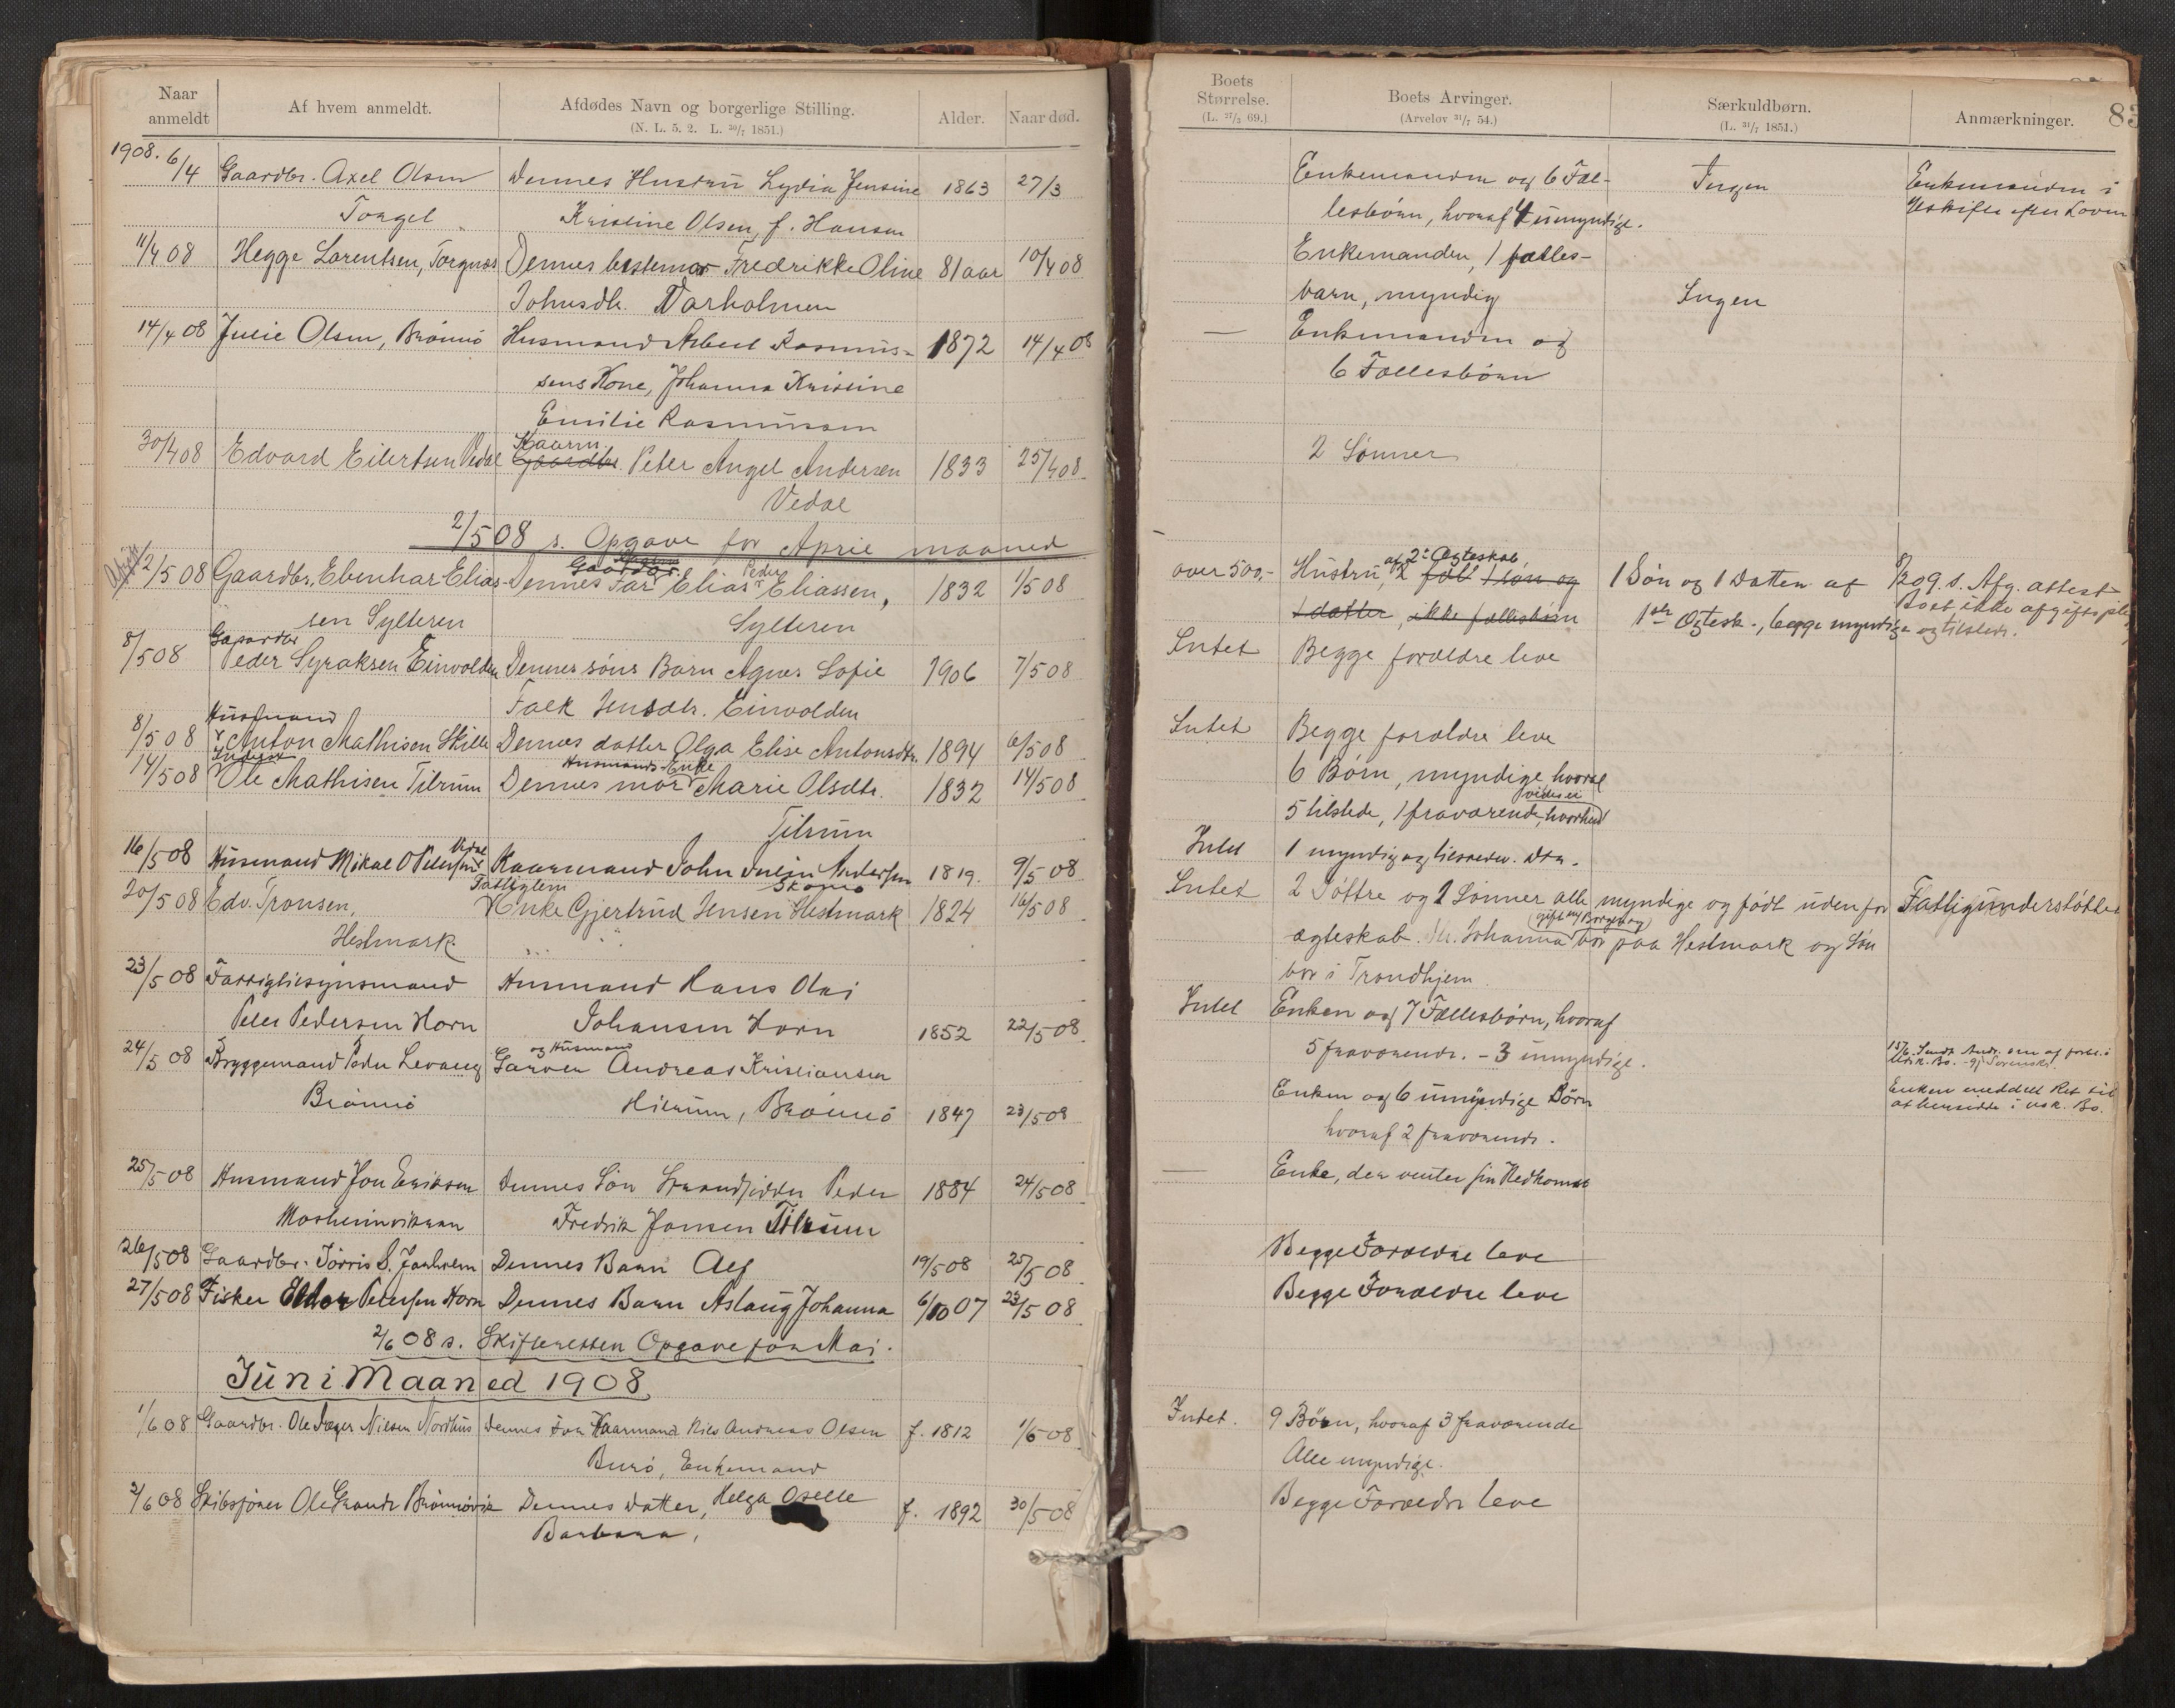 Naar anmeldt
Af hvem anmeldt.
Afdødes Navn og borgerlige Stilling.
(N. L. 5. 2. L. 30/7 1851.)
Alder.
Naar død.
1908. 6/4 Gaardbr. Axel Olsen Dennes Hustru Lydia Jensine 1863 27/3
Torget Kristine Olsen, f. Hansen
11/4 08 Hegge Lorentsen, Torgnes Dennes bestemor Fredrikke Oline 81 aar 10/4 08
Johnsdtr. Varholmen
14/4 08 Julie Olsen, Brønnø Husmand Albert Rasmus- 1872 14/4 08
sens Kone, Johanna Kristine
Emilie Rasmussen
30/4 08 Edvard Eilertsen Vedal Kaarm. Gaardbr. Peter Angel Andersen 1833 25/4 08
Vedal
2/5 08 s. Opgave for April maaned
2/5 08 Gaardbr. Ebenhar Elias- Dennes Far Elias Peder Eliassen, 1832 1/5 08
sen Sylteren Sylteren
8/5 08 Gaardbr Peder Syraksen Einvolden Dennes søns Barn Agnes Sofie 1906 7/5 08
Falk Jensdtr. Einvolden
8/5 08 Husmand Anton Mathisen Skille Dennes datter Olga Elise Antonsdtr. 1894 6/5 08
14/5 08 Inderst Ole Mathisen Tilrum Dennes mor Husmands-Enke Marie Olsdtr. 1832 14/5 08
Tilrum
16/5 08 Husmand Mikal O Petersen Vedal Kaarmand John Julin Andersen 1819. 9/5 08
Skomo
20/5 08 Edv. Tronsen, Fattiglem Enke Gjertrud Jensen Hestmark 1824 16/5 08
Hestmark
23/5 08 Fattigtilsynsmand Husmand Hans Olai
Peter Pedersen Horn Johansen Horn 1852 22/5 08
24/5 08 Bryggemand Peder Levang Garver og Husmand Andreas Kristiansen
Brønnø Hilrum, Brønnø 1847 23/5 08
25/5 08 Husmand Jon Eriksen Dennes Søn Strandsidder Peder 1884 24/5 08
Mosheimvikran Fredrik Jonsen Tilrum
26/5 08 Gaardbr. Jørris S. Dennes Barn Alf 19/5 08 25/5 08
27/5 08 Fisker Eldor Petersen Horn Dennes Barn Aslaug Johanna 6/10 07 23/5 08
2/6 08 s. Skifteretten Opgave for Mai.
Juni Maaned 1908
1/6 08 Gaardbr. Ole Jæger Nilsen Nordhus Dennes Far Kaarmand Nils Andreas Olsen f. 1812 1/6 08
Burø, Enkemand
2/6 08 Skibsfører Ole Grande Brønnøvik Dennes Datter, Helga Oselle f. 1892 30/5 08
Barbara,
Boets Størrelse.
(L. 27/3 69.)
Boets Arvinger.
(Arvelov 31/7 54.)
Særkuldbørn.
(L. 31/7 1851.)
Anmærkninger.
83
Enkemanden og 6 Fæl- Ingen Enkemanden i
lesbørn, hvoraf 4 umyndige. Uskifte efter Loven
Enkemanden, 1 fælles-
barn, myndig Ingen
— Enkemanden og
6 Fællesbørn
2 Sønner
over 500,- Hustru, af 2t Ægteskab, 2 fæll 1 søn og 1 Søn og 1 Datter af 8/2 09 s. Afg. attest
1 datter, ikke fællesbørn 1ste Ægtesk., begge myndige og tilstede. Boet ikke afgiftspl
Intet Begge forældre leve
Intet Begge forældre leve
6 Børn, myndige hvoraf
5 tilstede, 1 fraværende, hvorhen vides ei
Intet 1 myndig og tilstedev. Dtr.
Intet 2 Døttre og 1 Sønner alle myndige og født uden for Fattigunderstøttet
ægteskab. Johanna gift m/ Borgen og bor paa Hestmark og Søn
bor i Trondhjem
Intet Enken og 7 Fællesbørn, hvoraf
5 fraværende. - 3 umyndige.
Enken og 6 umyndige Børn Enken meddelt Ret til
hvoraf 2 fraværende. at hensidde i usk. Bo.
— Enke, der venter sin Nedkomst
Begge Forældre leve
Begge Forældre leve
Intet. 9 Børn, hvoraf 3 fraværende
Alle myndige.
Begge Forældre leve